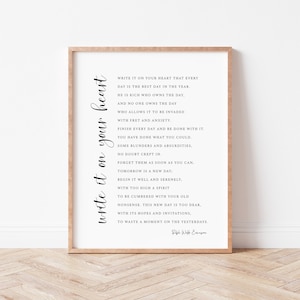 write it on your heart
WRITE IT ON YOUR HEART THAT EVERY
DAY IS THE BEST DAY IN THE YEAR.
HE IS RICH WHO OWNS THE DAY,
AND NO ONE OWNS THE DAY
WHO ALLOWS IT TO BE INVADED
WITH FRET AND ANXIETY.
FINISH EVERY DAY AND BE DONE WITH IT.
YOU HAVE DONE WHAT YOU COULD.
SOME BLUNDERS AND ABSURDITIES,
NO DOUBT CREPT IN.
FORGET THEM AS SOON AS YOU CAN,
TOMORROW IS A NEW DAY;
BEGIN IT WELL AND SERENELY,
WITH TOO HIGH A SPIRIT
TO BE CUMBERED WITH YOUR OLD
NONSENSE. THIS NEW DAY IS TOO DEAR,
WITH ITS HOPES AND INVITATIONS,
TO WASTE A MOMENT ON THE YESTERDAYS.
Ralph Waldo Emerson